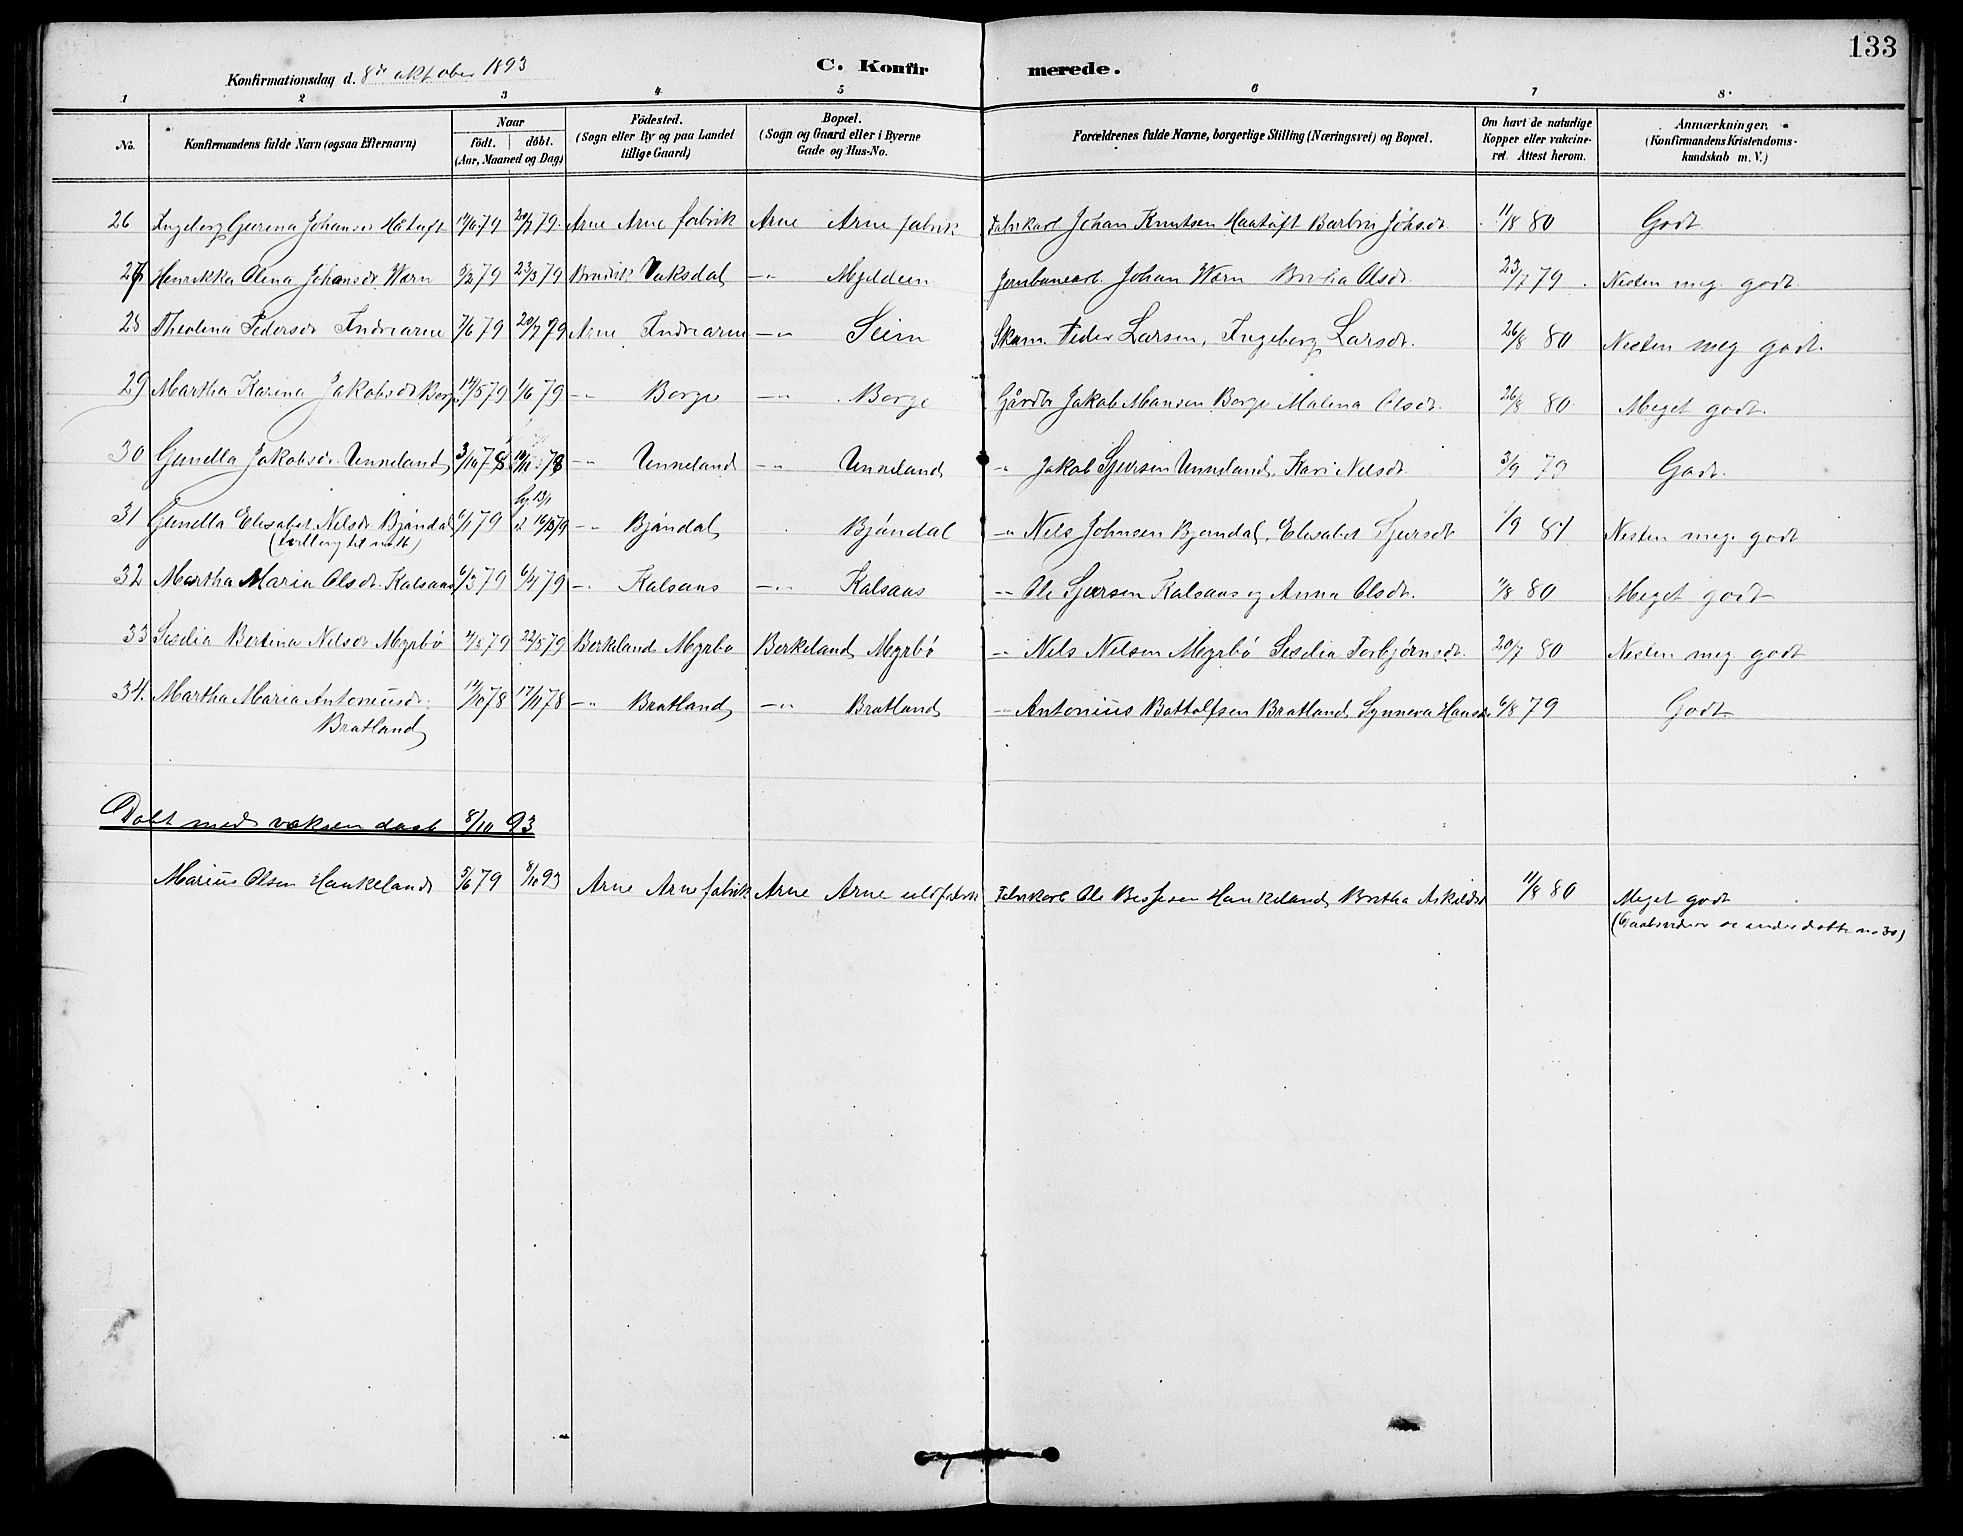 133
Konfirmationsdag d. 8de oktober 1893
C. Konfirmerede.
1 2 3 4 5 6 7 8
No. Konfirmandens fulde Navn (ogsaa Efternavn) Naar født. døbt. (Aar, Maaned og Dag) Fødested. (Sogn eller By og paa Landet tillige Gaard) Bopæl. (Sogn og Gaard eller i Byerne Gade og Hus-No. Forældrenes fulde Navne, borgerlige Stilling (Næringsvei) og Bopæl. Om havt de naturlige Kopper eller vakcineret. Attest herom. Anmærkninger. (Konfirmandens Kristendomskundskab m. V.)
26 Ingeborg Gurina 79 20/7 79 Arne Arne fabrik Arne Arne fabrik Fabrikarb Johan Knutsen 11/8 80 Godt
27 Henrikka Olena Johansdr Wærn 5/2 79 23/3 79 Vaksdal -"- Mjeldeim Jernbanearb. Johan Wærn Olsdr. 23/7 79 Nesten meg. godt
28 Theolina Pedersdr Indrearne 7/6 79 20/7 79 Arne Indrearne -"- Seim Peder Larsen, Ingeborg Larsdr. 26/8 80 Nesten meg godt.
29 Martha Karina Jakobsdr Borge 14/5 79 1/6 79 -"- Borge -"- Borge Gårdbr Jakob Monsen Borge Malena Olsdr. 26/8 80 Meget godt.
30 Gunella Jakobsdr Unneland 3/10 78 10/11 78 -"- Unneland -"- Unneland -"- Jakob Sjursen Unneland, Kari Nelsdr. 3/9 79 Godt.
31 Gunella Elisabet Nelsdr Bjåndal 6/1 79 13/1 16/3 79 -"- Bjåndal Bjåndal -"- Nels Johnsen Bjondal, Elisabet Sjursdr 1/9 81 Nesten meg. godt
32 Martha Maria Olsdr. Kalsaas 6/3 79 6/4 79 -"- Kalsaas -"- Kalsaas -"- Ole Sjursen Kalsaas og Anna Olsdr. 1/8 80 Meget godt
33 Sesilia Bertina Nelsdr Myrbø 4/5 79 22/5 79 Borkeland Myrbø Borkeland Myrbø -"- Nels Nelsen Myrbø Sesilia Torbjørnsdr. 20/7 80 Nesten meg godt
34. Martha Maria Antoniusdr. 14/10 78 17/11 78 -"- Bratland -"- Bratland -"- Antonius Bottolfsen Bratland Synneva Hansdr 6/8 79 Godt
Bratland
Døbt med voksen daab 8/10 93
Marius Olsen Haukeland 5/6 79 8/10 93 Arne Arne fabrik Arne Arne uldfabrik Fabrikarb Ole Haukeland Britha Askildsd 11/8 80 Meget godt